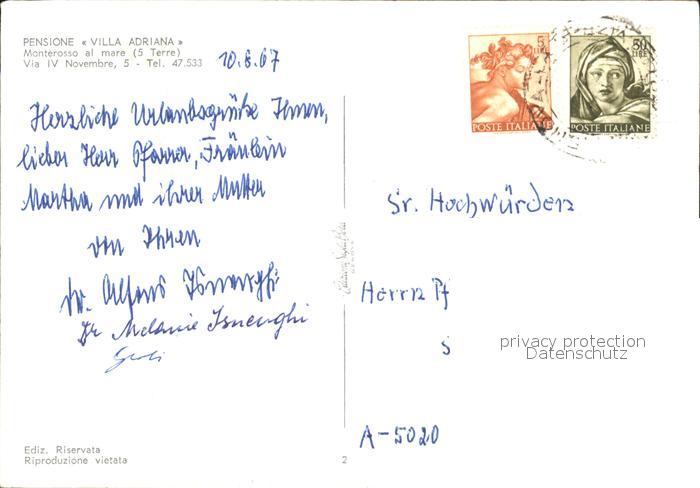 PENSIONE « VILLA ADRIANA »
Monterosso al mare (5 Terre)
Via IV Novembre, 5 - Tel. 47.533
10.8.67
Herzliche Urlaubsgrüße Ihnen,
lieber Herr Pfarrer, Fräulein
Martha und ihrer Mutter
von Ihren
Dr. Alfons Isnenghi
Dr Melanie Isnenghi
5 LIRE
POSTE ITALIANE
50 LIRE
POSTE ITALIANE
Sr. Hochwürden
Herrn Pf
S
privacy protection
Datenschutz
A-5020
Ediz. Riservata
Riproduzione vietata
2